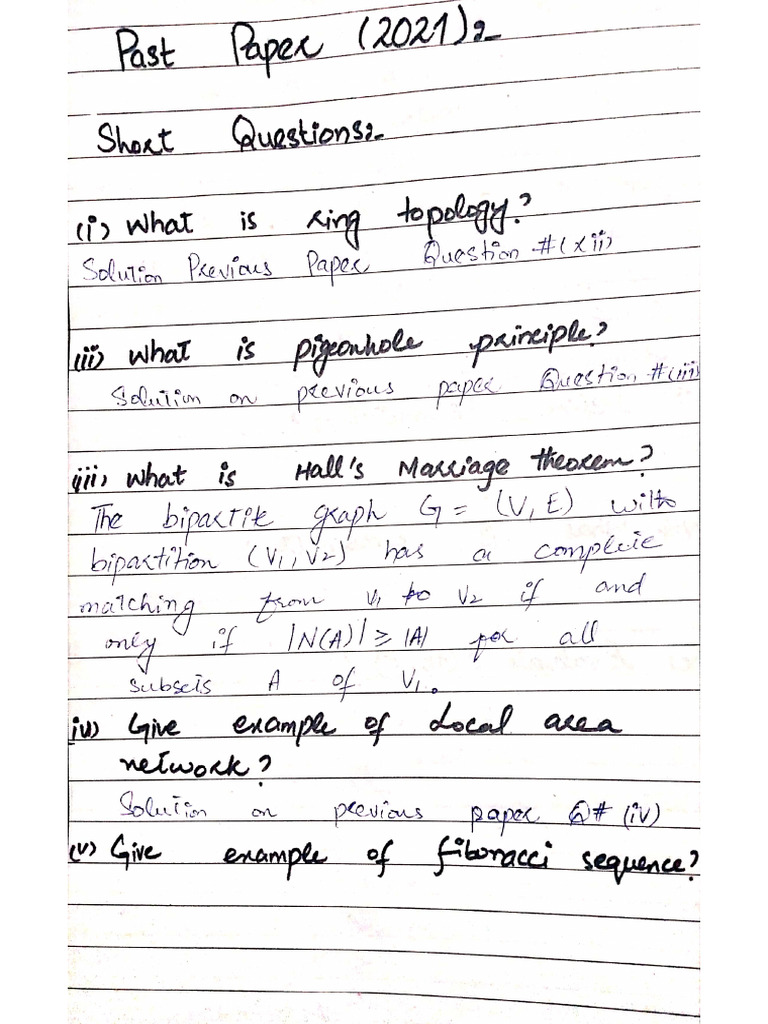 Past Paper (2021):-
Short Questions:-
(i) What is ring topology?
Solution Previous Paper Question #(xii)
(ii) What is pigeonhole principle?
Solution on previous paper Question #(iii)
(iii) What is Hall's Marriage theorem?
The bipartite graph G = (V, E) with
bipartition (V1, V2) has a complete
matching from V1 to V2 if and
only if |N(A)| ≥ |A| for all
subsets A of V1.
(iv) Give example of Local area
network?
Solution on previous paper Q# (iv)
(v) Give example of fibonacci sequence?